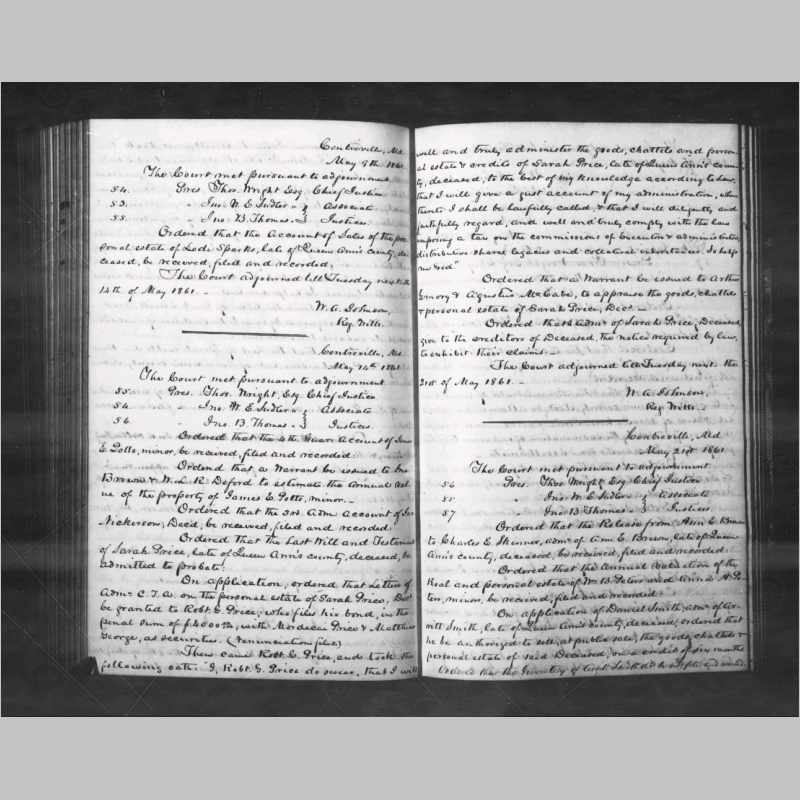 Centreville, Md
May 9th 1861
The Court met pursuant to adjournment
54. Pres. Thos. Wright Esq. Chief Justice
53. " Jno. W. E. Sudler } Associate
55. " Jno. B. Thomas. } Justices.
Ordered that the Account of Sales of the per
sonal estate of Sparks, late of Queen Ann's county, de
ceased, be received, filed and recorded.
The Court adjourned till Tuesday next the
14th of May 1861.
W. A. Johnson,
Reg. Wills.
Centreville, Md
May 14th 1861
The Court met pursuant to adjournment
55. Pres. Thos. Wright, Esq. Chief Justice
54. " Jno. W. E. Sudler } Associate
56 " Jno. B. Thomas. } Justices.
Ordered that the 4th Guar. Account of
E Potts, minor, be received, filed and recorded.
Ordered that a Warrant be issued to
Browne & W. R. Deford to estimate the annual val
ue of the property of James E. Potts, minor.
Ordered that the 3rd Adm. Account of Jas
Nickerson, Decd, be received, filed and recorded.
Ordered that the Last Will and Testament
of Sarah Price, late of Queen Ann's county, deceased, be
admitted to probate.
On application, ordered that Letters of
Adm. C. T. A. on the personal estate of Sarah Price, Decd
be granted to Robt. E. Price, who files his bond, in the
penal sum of with Mordecai Price & Matthew
George, as securities.
Then came Robt. E. Price, and took the
following oath: "I, Robt. E. Price do swear, that I will
well and truly administer the goods, chattels and person
al estate & credits of Sarah Price, late of Queen Ann's coun
ty, deceased, to the best of my knowledge according to law,
that I will give a just account of my administration, when
thereto I shall be lawfully called, & that I will diligently and
faithfully regard, and well and truly comply with the law
imposing a tax on the commissions of Executors & administrators,
distributive shares legacies and collateral inheritances. So help
me God."
Ordered that a Warrant be issued to Arthur
Emory & Agustus McCabe, to appraise the goods, chattels
& personal estate of Sarah Price, Decd.
Ordered that Adm. of Sarah Price, Deceased,
give to the creditors of Deceased, the notice required by law,
to exhibit their claims.
The Court adjourned till Tuesday next the
21st of May 1861.
W. A. Johnson,
Reg. Wills.
Centreville, Md
May 21st 1861
The Court met pursuant to adjournment
56 Pres. Thos. Wright Esq Chief Justice
55 " Jno. W. E. Sudler } Associate
57 " Jno. B. Thomas. } Justices.
Ordered that the Release from Ann E. Brown
to Charles E. Skinner, adm. of Ann E. Brown, late of Queen
Ann's county, deceased, be received, filed and recorded.
Ordered that the Annual Valuation of the
Real and personal estate of Wm B. Peters and Anna
minor, be received, filed and recorded.
On application of Daniel Smith, adm. of
Smith, late of Queen Ann's county, deceased, ordered that
he be authorized to sell, at public sale, the goods, chattels &
personal estate of said Deceased, on a credit of six months
Ordered that the Inventory of